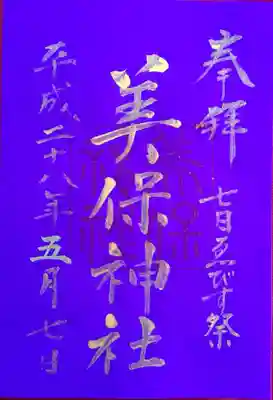 奉拝
七日えびす祭
美保神社
平成二十八年五月七日